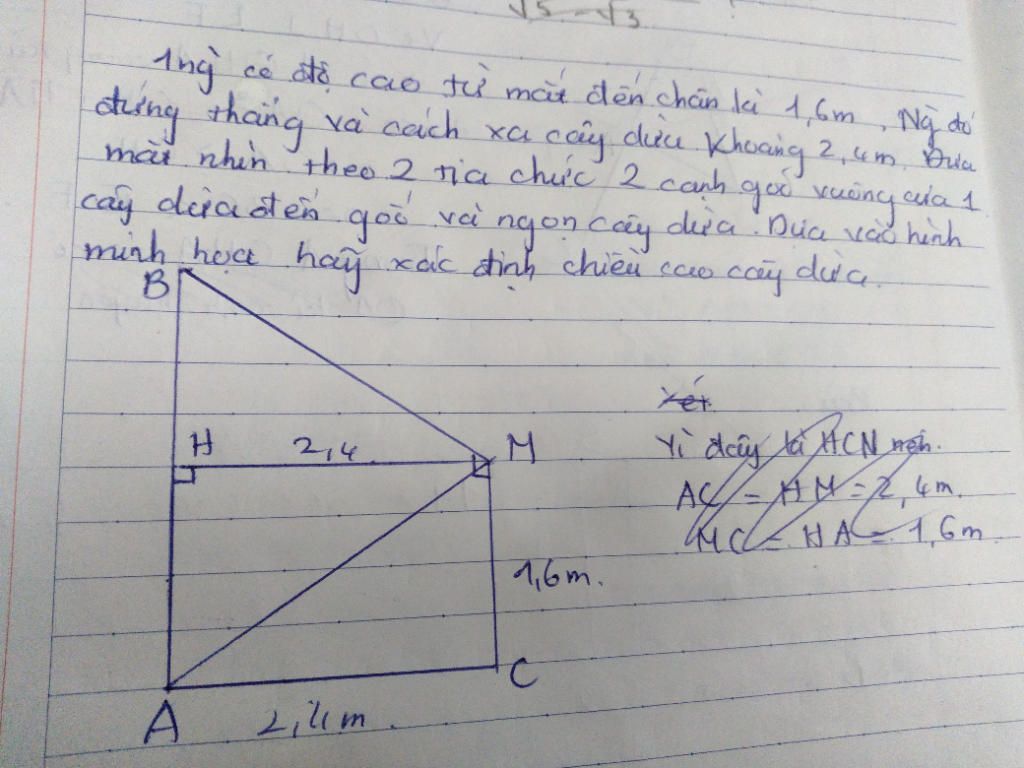 √5 - √3
1ng̀ có độ cao từ mắt đến chân là 1,6m. Ng̀ đó
đứng thẳng và cách xa cây dừa khoảng 2,4m. Đưa
mắt nhìn theo 2 tia chức 2 cạnh góc vuông của 1
cây dừa đến gốc và ngọn cây dừa. Dựa vào hình
minh họa hãy xác định chiều cao cây dừa.
B
Xét
H 2,4 M
Vì đây là HCN nên.
AC = HM = 2,4m.
MC = HA = 1,6m
1,6m.
A C
2,4m.